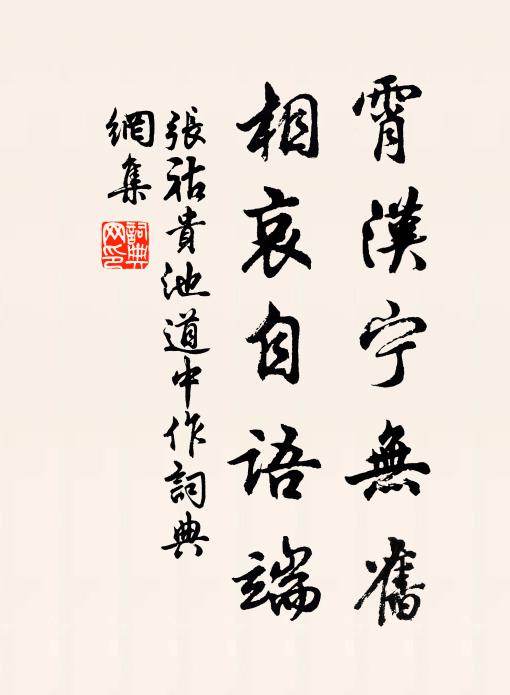 霄漢宁無舊
相哀自語端
張祜貴池道中作詞典
網集
詞典
网印